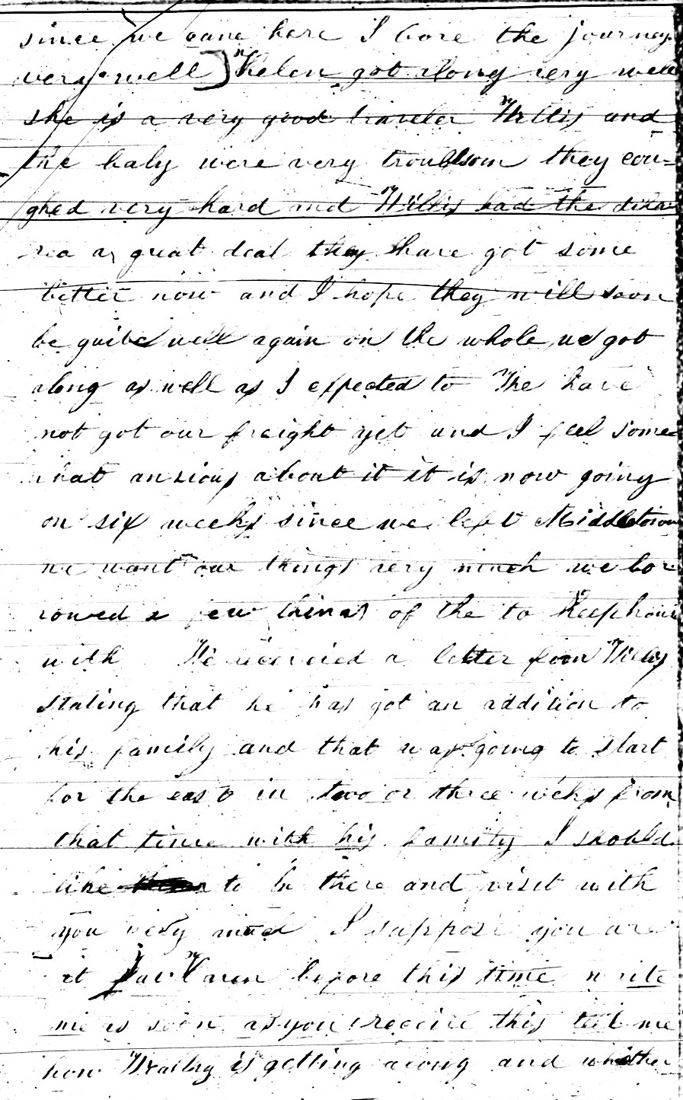 since we came here I bore the journey
very well] Helen got along very well
she is a very good traveler Willis and
the baby were very troublsom they cou=
ghed very hard and Willis had the diar
rea a great deal they have got some
better now and I hope they will soon
be quite well again on the whole we got
along as well as I expected to We have
not got our freight yet and I feel some
what anxious about it it is now going
on six weeks since we left Middletown
we want our things very much we bor
rowed a few things of the to keephous
with We received a letter from
stating that he has got an addition to
his family and that was going to start
for the east in two or three weeks from
that time with his family I should
like to be there and visit with
you very much I suppose you are
at before this time write
me as soon as you receive this tell me
how is getting along and whether